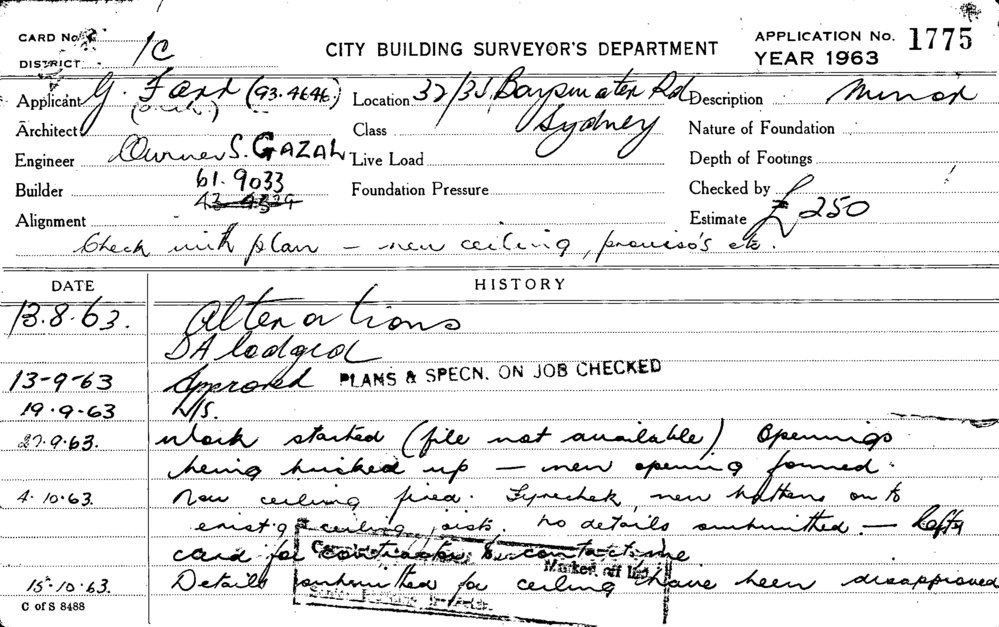 CARD No.
DISTRICT 1C
CITY BUILDING SURVEYOR'S DEPARTMENT
APPLICATION No. 1775
YEAR 1963
Applicant G. Farr (93.4646.) Location 32/35 Bayswater Rd Description Minor
Architect Class Sydney Nature of Foundation
Engineer Owner S. GAZAL Live Load Depth of Footings
Builder 61.9033 Foundation Pressure Checked by
Alignment Estimate £250
Check with plan – new ceiling, proviso's etc.
DATE HISTORY
13.8.63. Alterations
DA lodged
13-9-63 Approved PLANS & SPECN. ON JOB CHECKED
19.9.63 N/S.
27.9.63. Work started (file not available) Openings
being bricked up – new opening formed.
4.10.63. New ceiling fixed. Fyrechek, new battens on to
exist'g ceiling joists. No details submitted – left
card for contractor to contact me
Marked off list
15.10.63. Details submitted for ceiling have been disapproved
C of S 8488